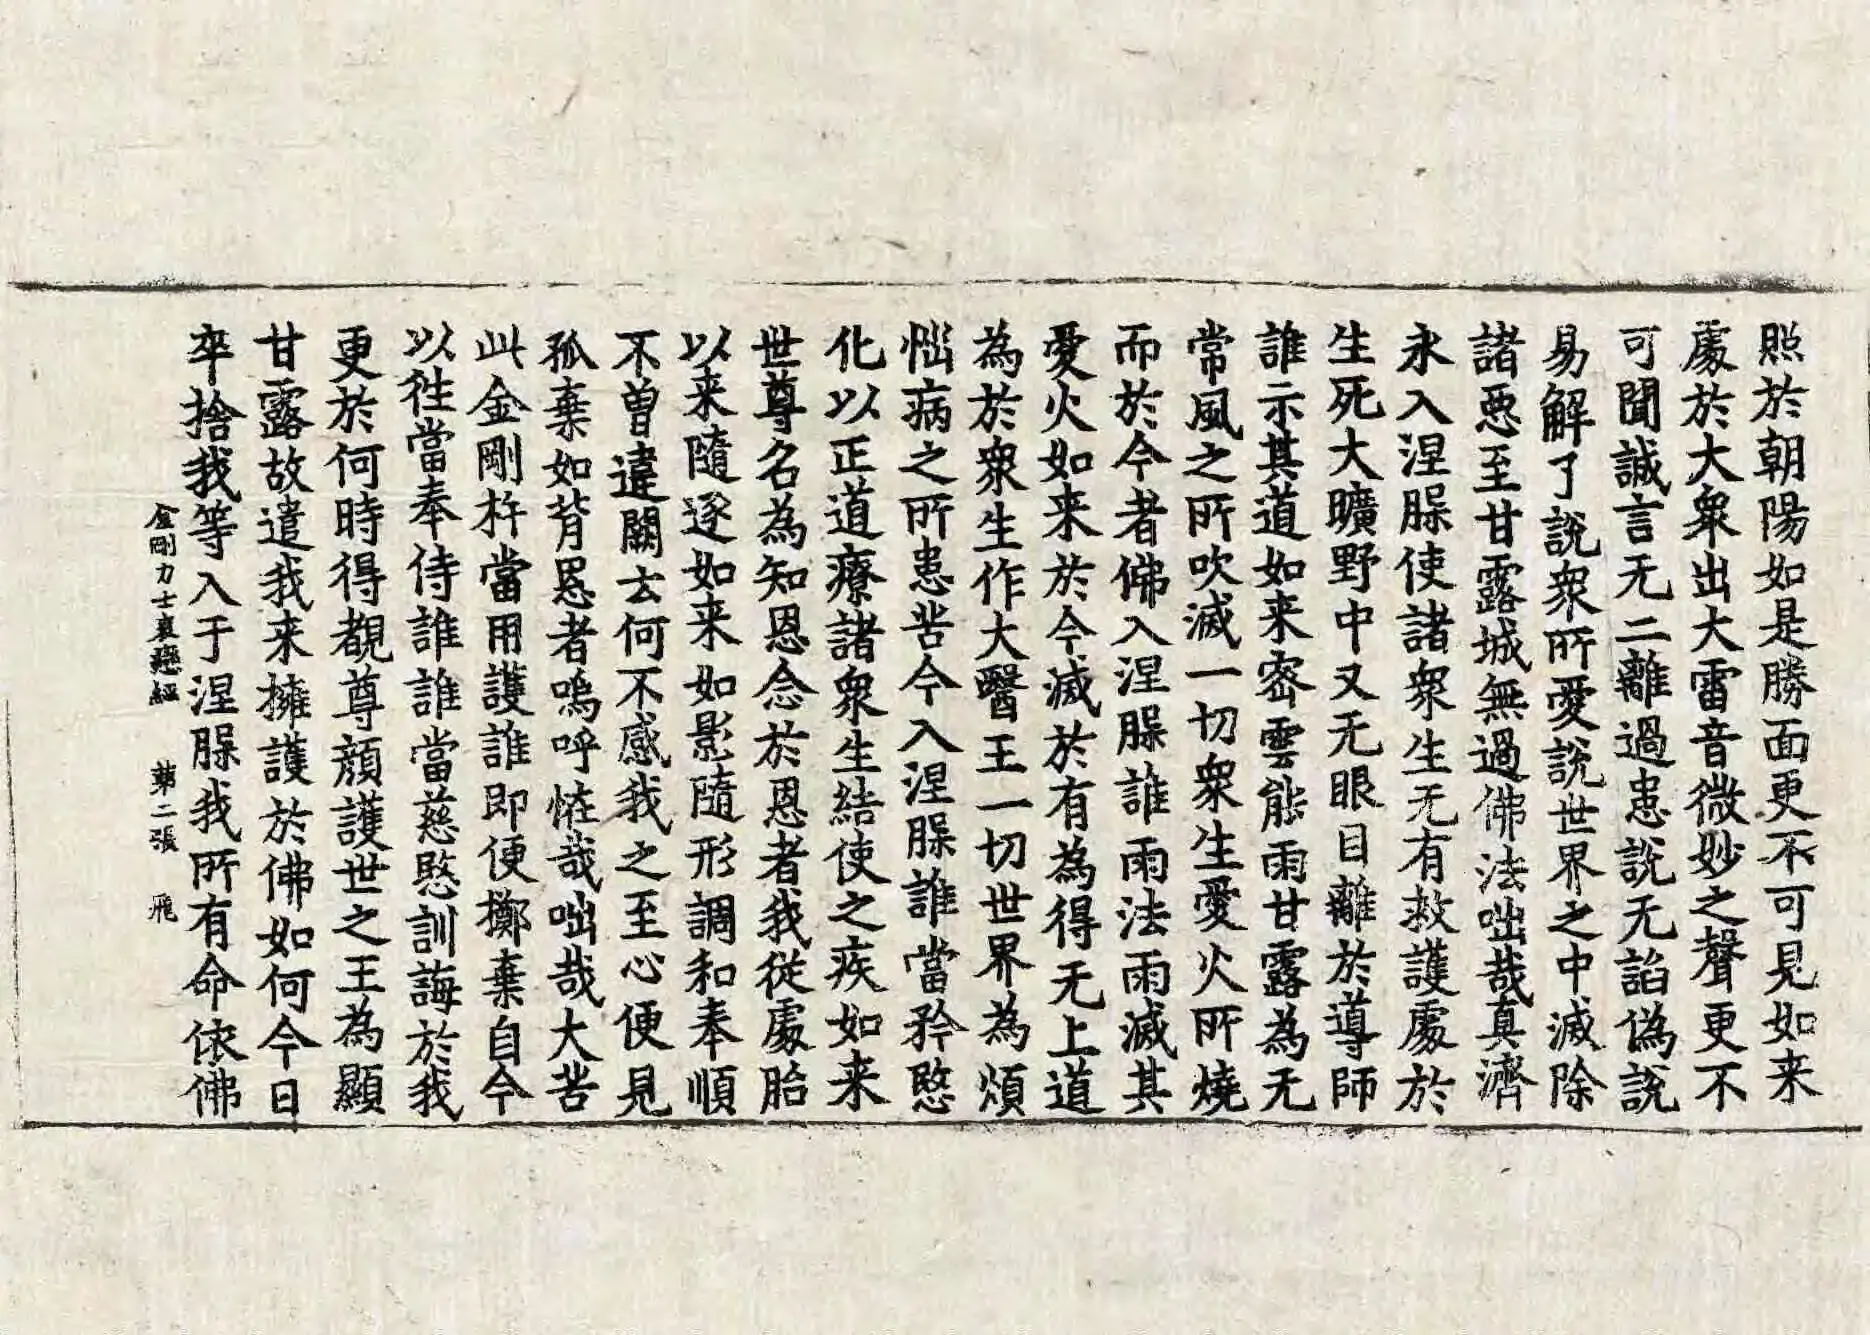 照於朝陽如是勝面更不可見如来
處於大衆出大雷音微妙之聲更不
可聞誠言无二離過患說无諂偽說
易解了說衆所愛說世界之中滅除
諸惡至甘露城無過佛法咄哉真濟
永入涅槃使諸衆生无有救護處於
生死大曠野中又无眼目離於導師
誰示其道如来密雲能雨甘露為无
常風之所吹滅一切衆生愛火所燒
而於今者佛入涅槃誰雨法雨滅其
愛火如来於今滅於有為得无上道
為於衆生作大醫王一切世界為煩
惱病之所患苦今入涅槃誰當矜愍
化以正道療諸衆生結使之疾如来
世尊名為知恩念於恩者我從處胎
以来隨逐如来如影隨形調和奉順
不曾違闕去何不感我之至心便見
孤棄如背恩者嗚呼恠哉咄哉大苦
此金剛杵當用護誰即便擲棄自今
以徃當奉侍誰誰當慈愍訓誨於我
更於何時得覩尊顏護世之王為顯
甘露故遣我来擁護於佛如何今日
卒捨我等入于涅槃我所有命依佛
金剛力士哀戀經 第二張 飛